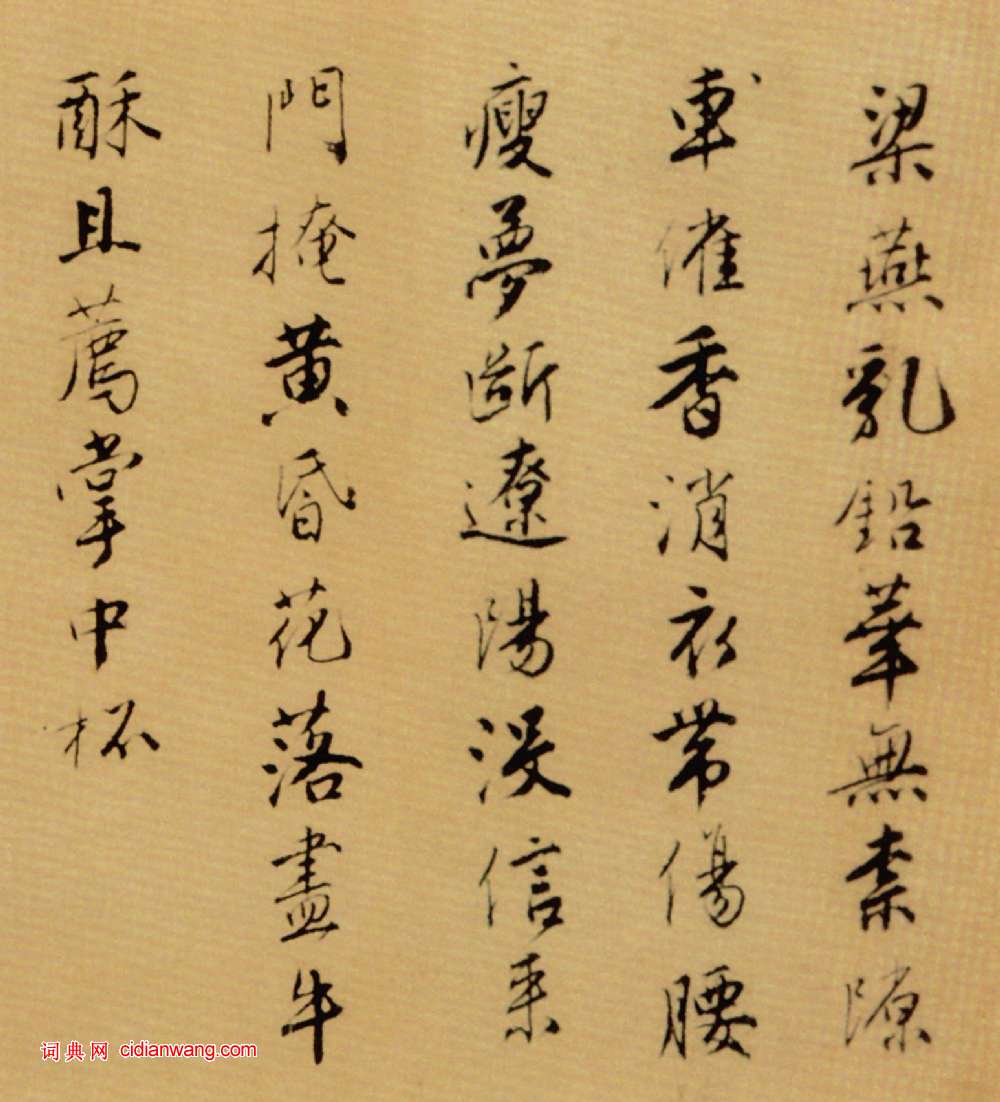 梁燕乳鉛華無柰隙
車催香消衣帶傷腰
瘦夢斷遼陽沒信來
門掩黄昏花落盡牛
酥且薦掌中杯
词典网 cidianwang.com